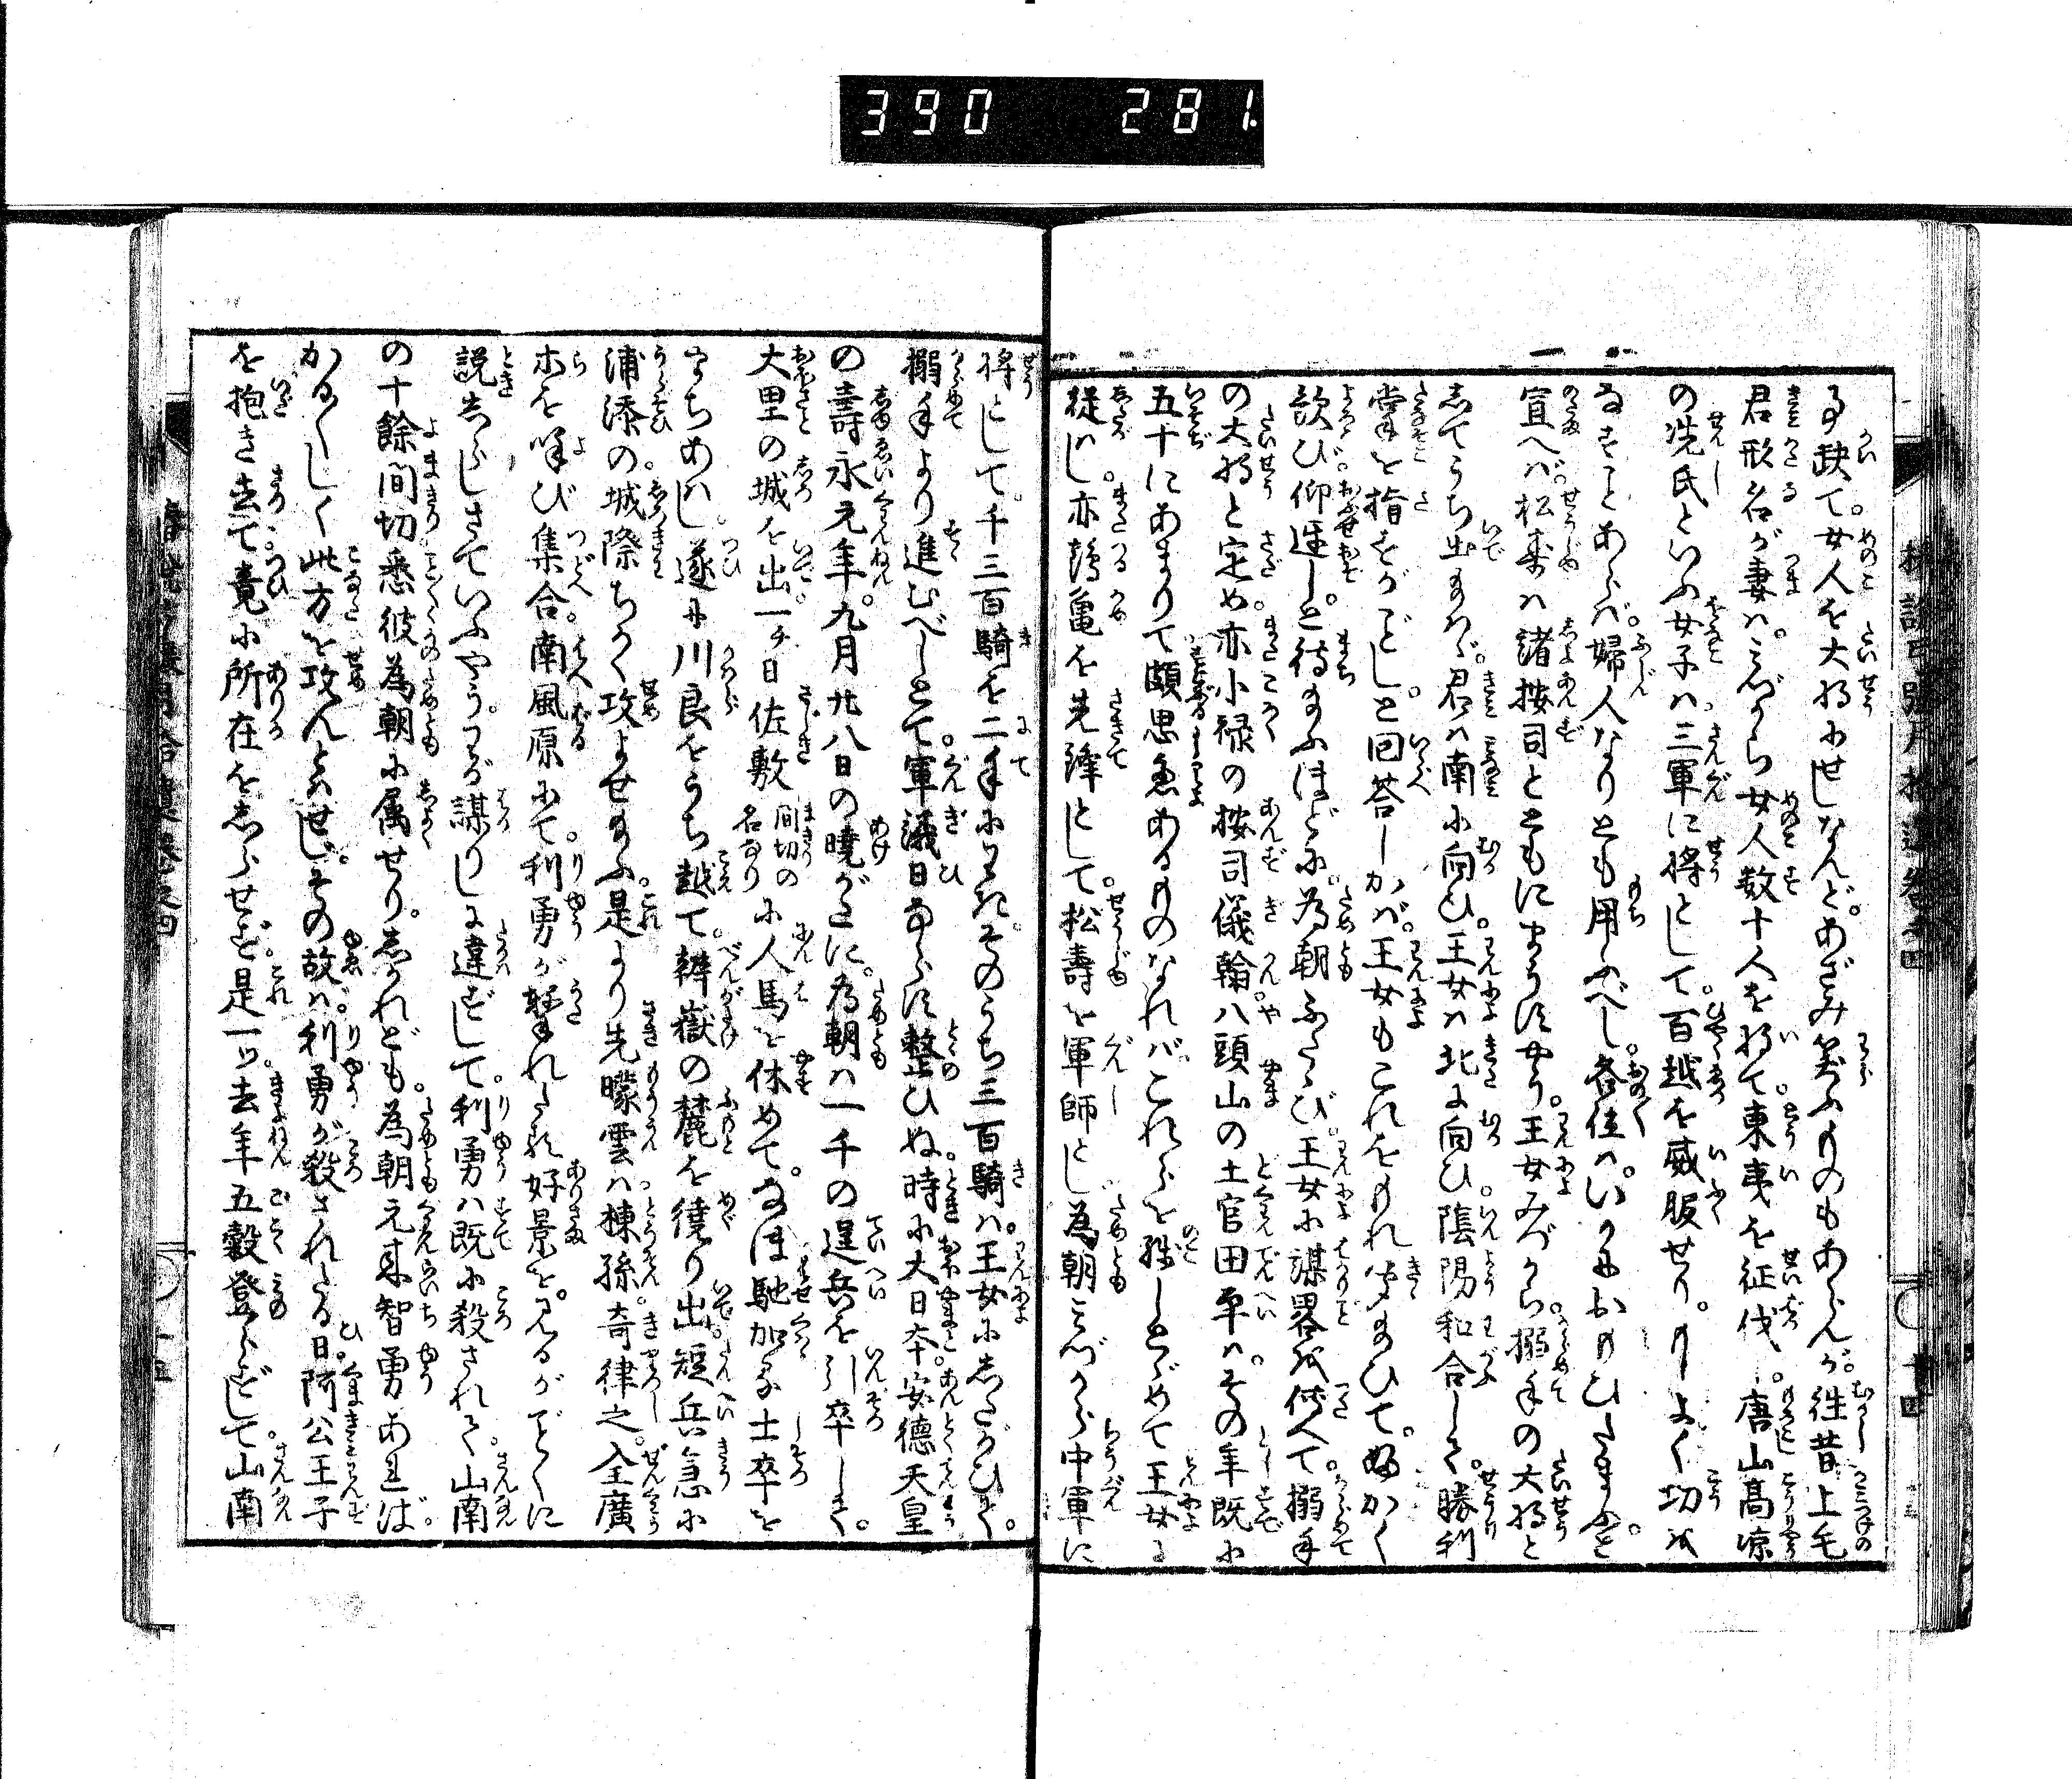 390 281
事缺て。女人を大将にせしなんど。あざみ笑ふものもあらんか。往昔上毛
君形名が妻は。みづから女人数十人を将て。東夷を征伐し。唐山高凉
の冼氏といふ女子は三軍に将として。百越を威服せり。もしよく功を
なすことあらば。婦人なりとも用ふべし。各位は。いかにおもひたまふと
宣へば。松壽は諸按司とともにまうすやう。王女みづから搦手の大将と
してうち出給はゞ。君は南に向ひ。王女は北に向ひ。陰陽和合して。勝利
掌を指すがごとし。と回答しかば。王女もこれをもれ聞給ひて。
歓び仰遅しと待給ふほどに。為朝ふたゝび。王女に謀畧を傳へて。搦手
の大将と定め。亦小禄の按司儀翰。八頭山の土官田平は。その年既に
五十にあまりて頗思慮あるものなれば。これらを残しとゞめて王女に
従はし。亦鶴亀を先鋒として。松壽を軍師とし為朝みづから中軍に
将として。千三百騎を二手にわけ。そのうち三百騎は。王女にしたがひて。
搦手より進むべしとて。軍議日ならず整ひぬ。時に大日本。安徳天皇
の壽永元年。九月廿八日の暁がたに。為朝は一千の逞兵を引卒して。
大里の城を出。一チ日佐敷間切の名なりに人馬を休めて。なほ馳加る士卒を
まちあはし。遂に川良をうち越て。辨嶽の麓を繞り出。短兵急に
浦添の城際ちかく攻よせ給ふ。是より先曚雲は。棟孫。奇律之。全廣
ホを呼び集合。南風原にて。利勇が撃れたる好景を。見るがごとくに
説しらし。さていふやう。わが謀りしに違ずして。利勇は既に殺されて。山南
の十餘間切悉彼為朝に属せり。しかれども。為朝元来智勇あれば。
かろ〳〵しく此方を攻んとはせじ。その故は。利勇が殺されたる日。阿公王子
を抱き去て。竟に所在をしらせず。是一ッ。去年五穀登らずして。山南